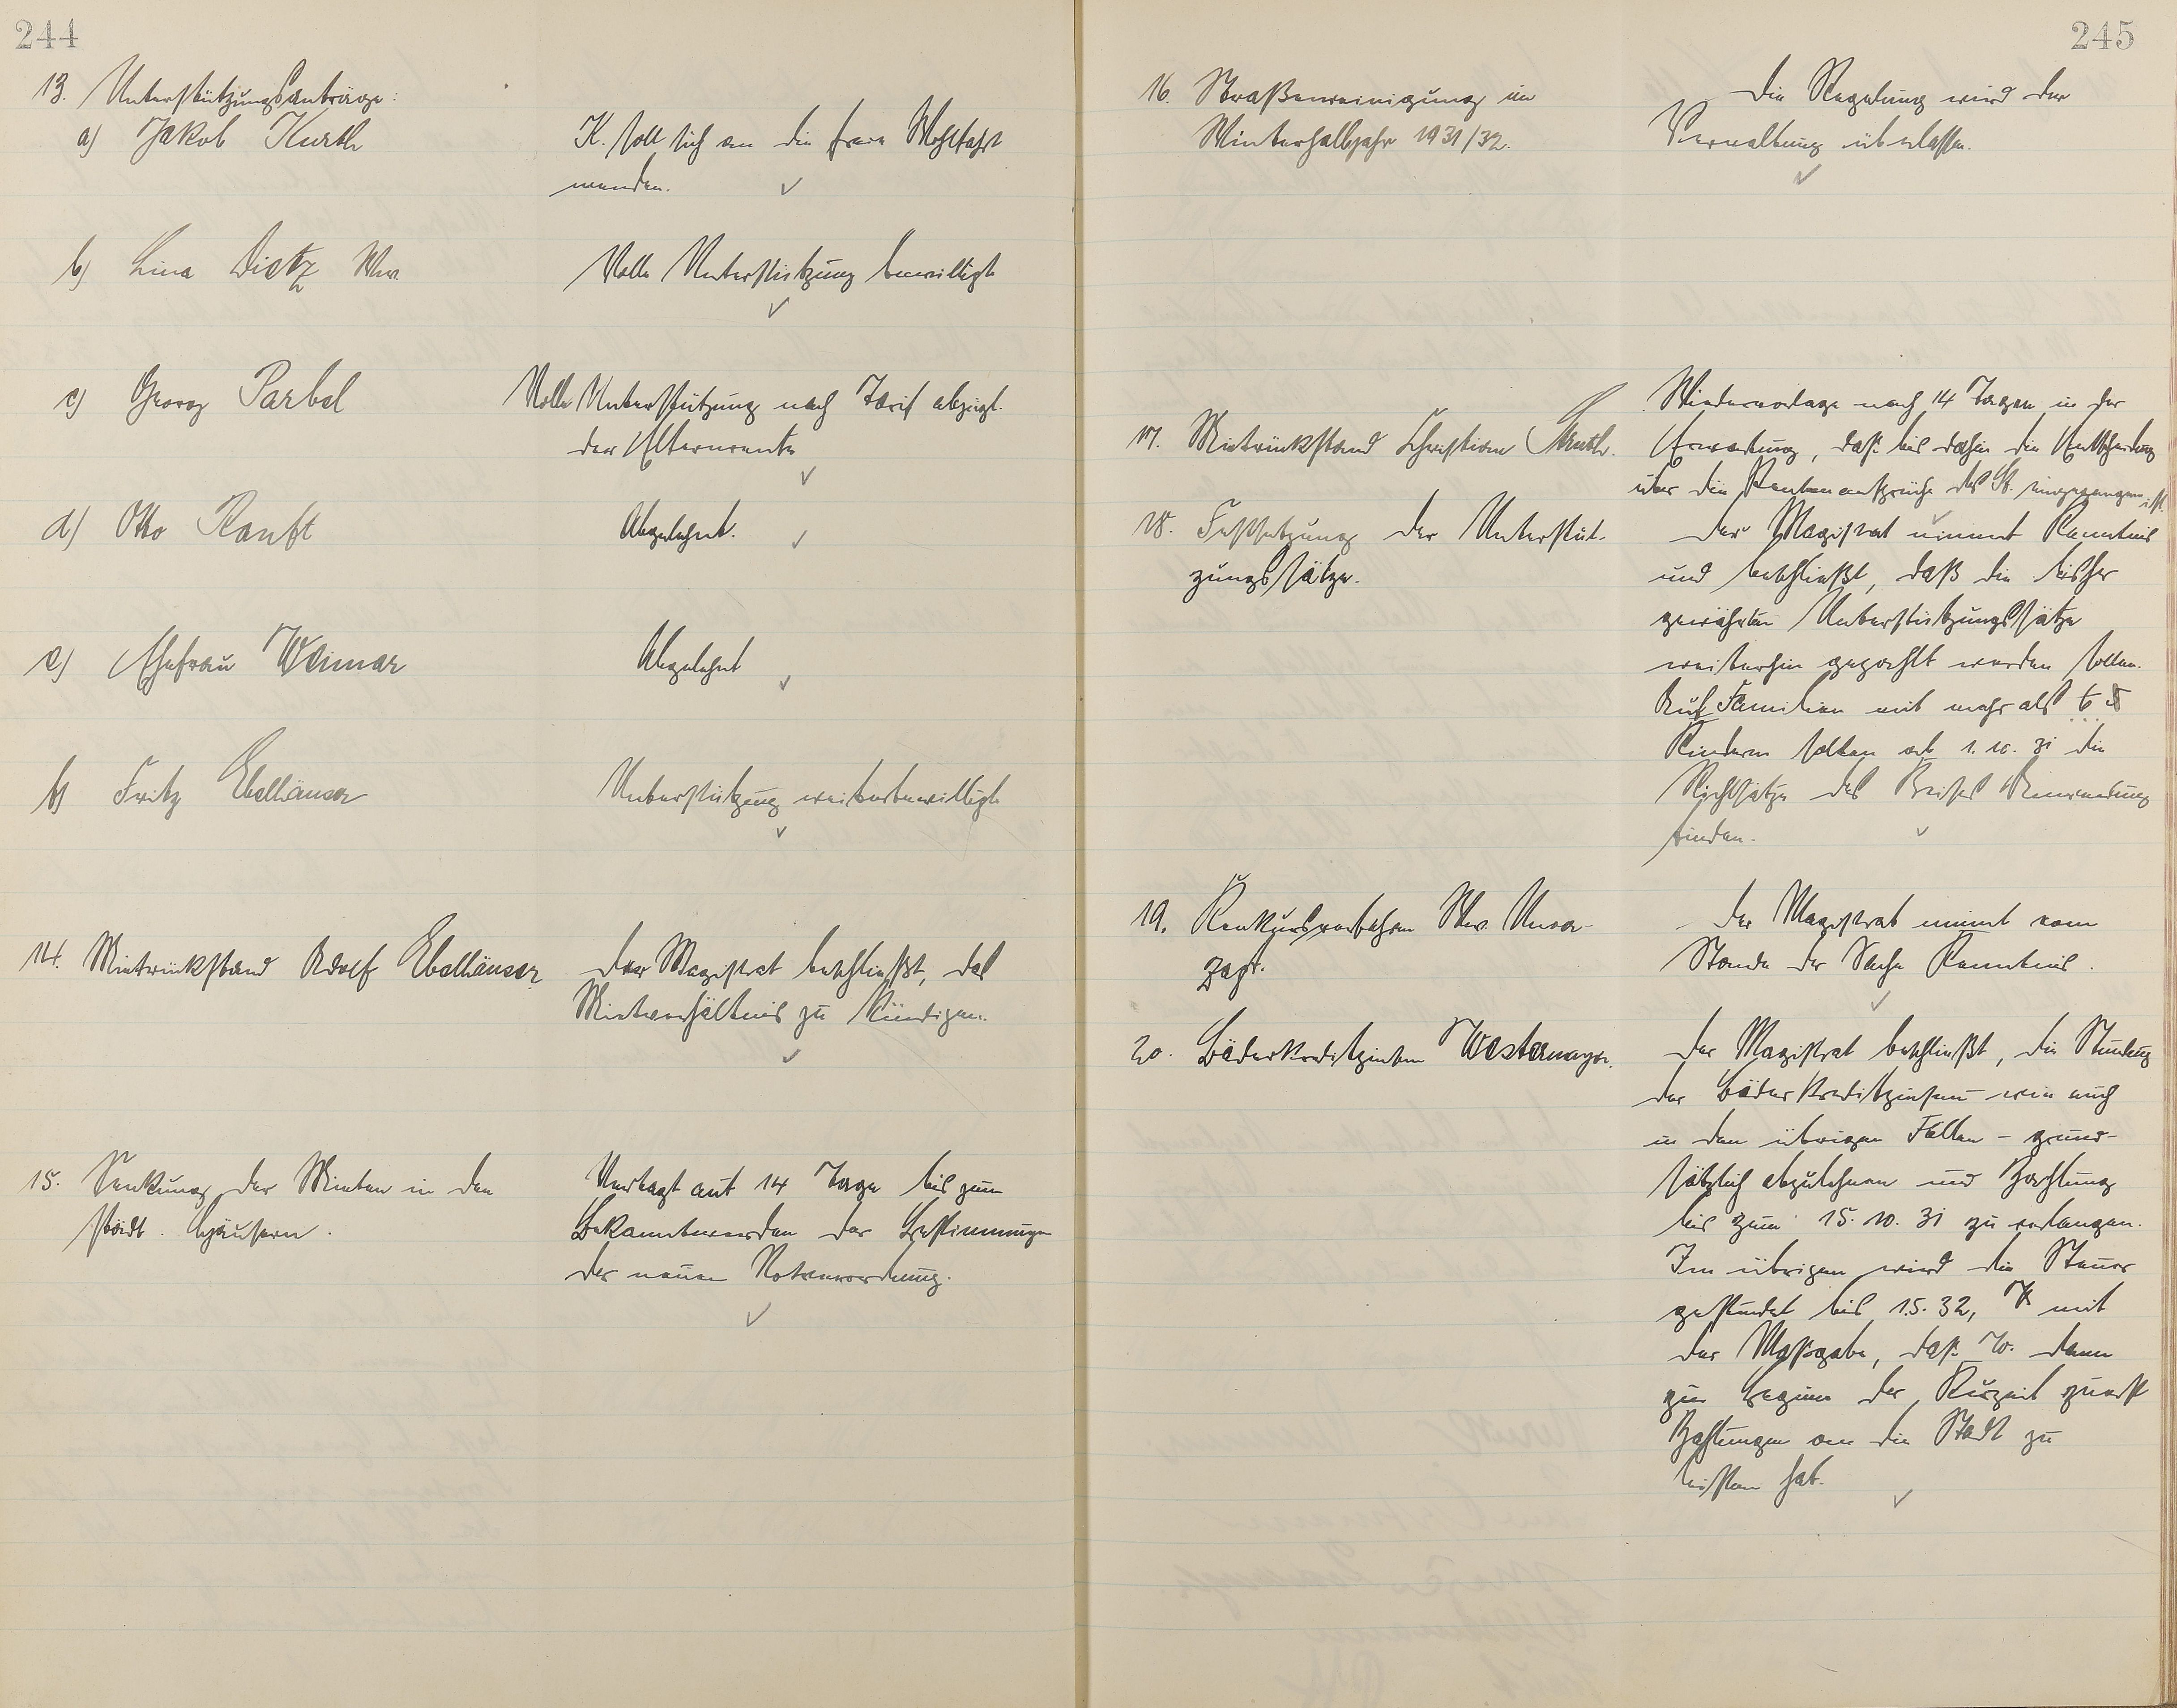 244
13. Unterstützungsanträge:
a) Jakob Kurth
K. soll sich an die freie Wohlfahrt
wenden.
b) Lina Dietz Wwe.
Volle Unterstützung bewilligt
c) Georg Parbel
Volle Unterstützung nach Tarif abzügl.
der Elternrente
d) Otto Ranft
Abgelehnt.
e) Ehefrau Weimar
Abgelehnt
f) Fritz Ebelhäuser
Unterstützung weiterbewilligt
14. Mietrückstand Adolf Ebelhäuser
Der Magistrat beschließt, das
Mietverhältnis zu kündigen.
15. Senkung der Mieten in den
städt. Häusern.
Vertagt auf 14 Tage bis zum
Bekanntwerden der Bestimmungen
der neuen Notverordnung.
245
16. Straßenreinigung im
Winterhalbjahr 1931/32.
Die Regelung wird der
Verwaltung überlassen.
17. Mietrückstand Christian
Wiedervorlage nach 14 Tagen in der
Erwartung, daß bis dahin die Entscheidung
über die Rentenansprüche des St. eingegangen ist.
18. Festsetzung der Unterstüt-
zungssätze.
Der Magistrat nimmt Kenntnis
und beschließt, daß die bisher
gewährten Unterstützungssätze
weiterhin gezahlt werden sollen.
Auf Familien mit mehr als 6 5
Kindern sollen ab 1.10.31 die
Richtsätze des Kreises Anwendung
finden.
19. Konkursverfahren Wwe. Unver-
zagt.
Der Magistrat nimmt vom
Stande der Sache Kenntnis.
20. Bäderkreditzinsen Westermayer.
Der Magistrat beschließt, die Stundung
der Bäderkreditzinsen – wie auch
in den übrigen Fällen – grund-
sätzlich abzulehnen und Zahlung
bis zum 15.10.31 zu verlangen.
Im übrigen wird die Steuer
gestundet bis 1.5.32, mit
der Maßgabe, daß W. dann
zu Beginn der Kurzeit zuerst
Zahlungen an die Stadt zu
leisten hat.